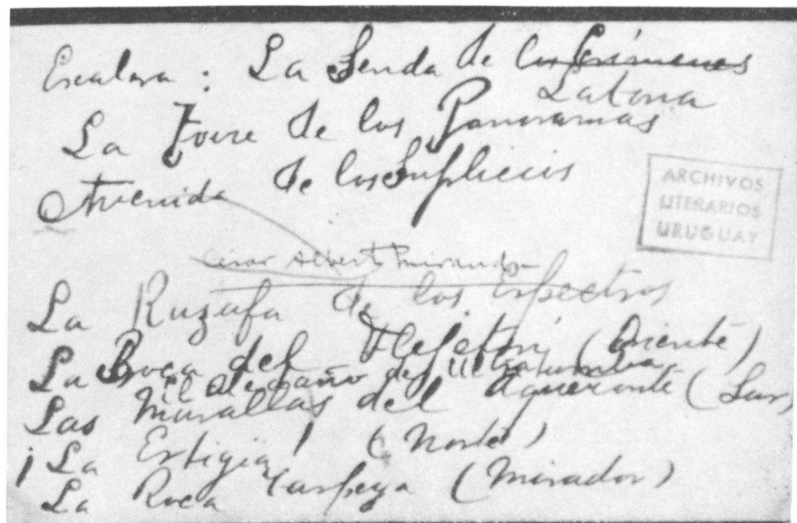 Escalera : La Senda de los Crímenes
Latona
La Torre de los Panoramas
Avenida de los Suplicios
ARCHIVOS
LITERARIOS
URUGUAY
César Albert Miranda
La Ruzafa de los espectros
La Boca del Flejetón (Oriente)
El de Ultratumba
Las Murallas del Aqueronte (Sur)
¡La Estigia! (Norte)
La Roca Tarpeya (Mirador)